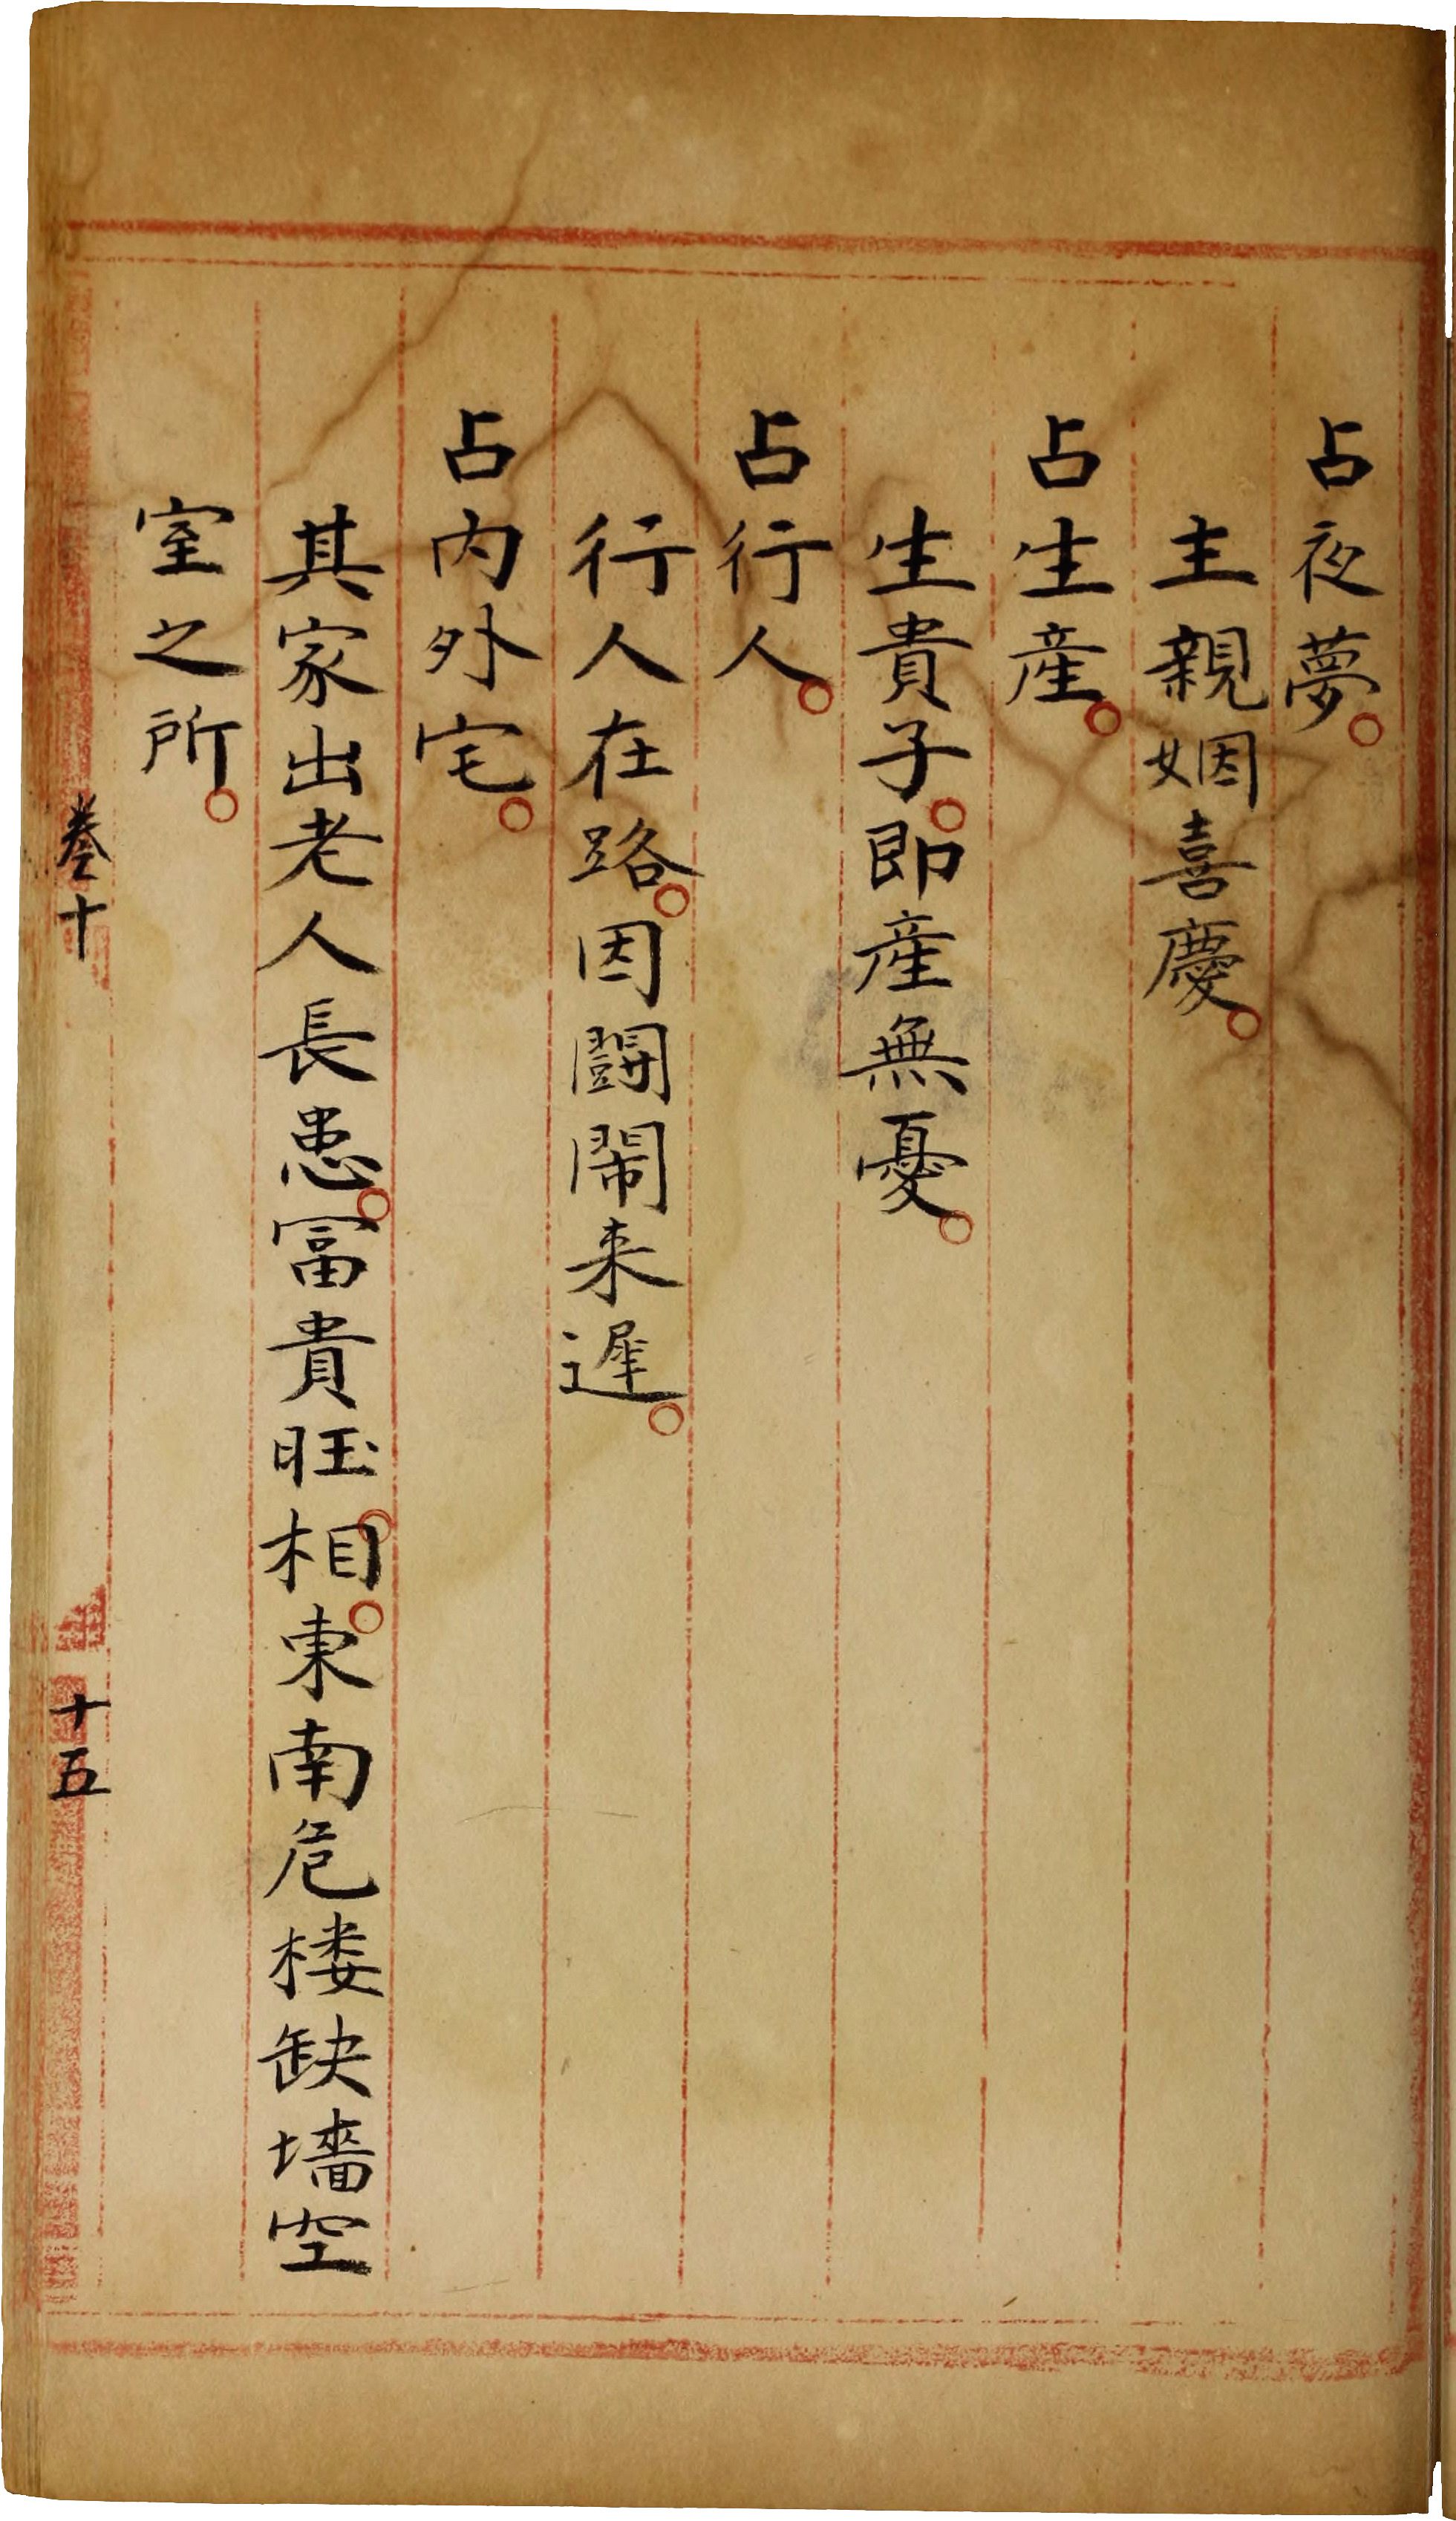 占夜夢。
主親姻喜慶。
占生産。
生貴子。即産無憂。
占行人。
行人在路。因鬪鬧来遲。
占内外宅。
其家出老人長患。冨貴旺。相。東南危楼缺墻空
室之所。
卷十
十五